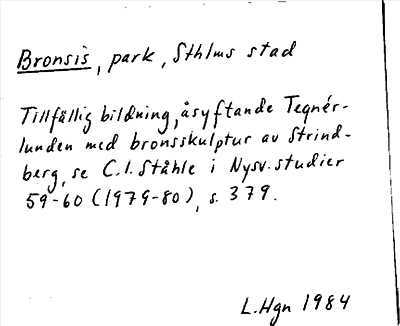 Bronsis, park, Sthlms stad
Tillfällig bildning, åsyftande Tegnér-
lunden med bronsskulptur av Strind-
berg, se C.I. Ståhle i Nysv. studier
59-60 (1979-80), s. 379.
L. Hgn 1984